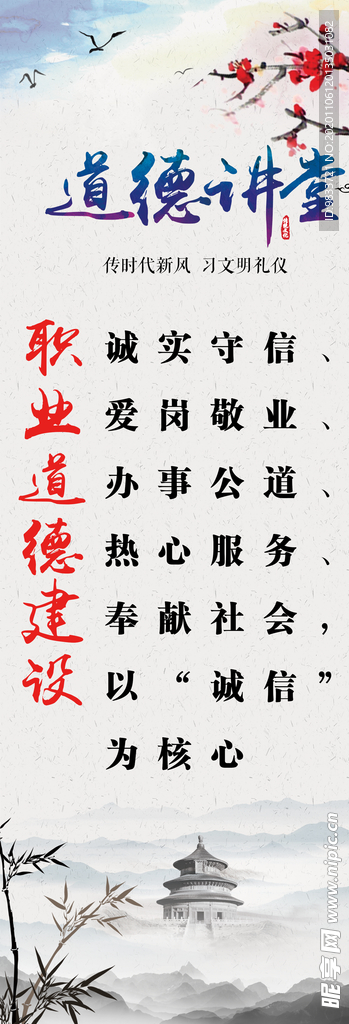 道德讲堂
传时代新风 习文明礼仪
职业道德建设
诚实守信、
爱岗敬业、
办事公道、
热心服务、
奉献社会，
以“诚信”
为核心
昵享网 www.nipic.cn